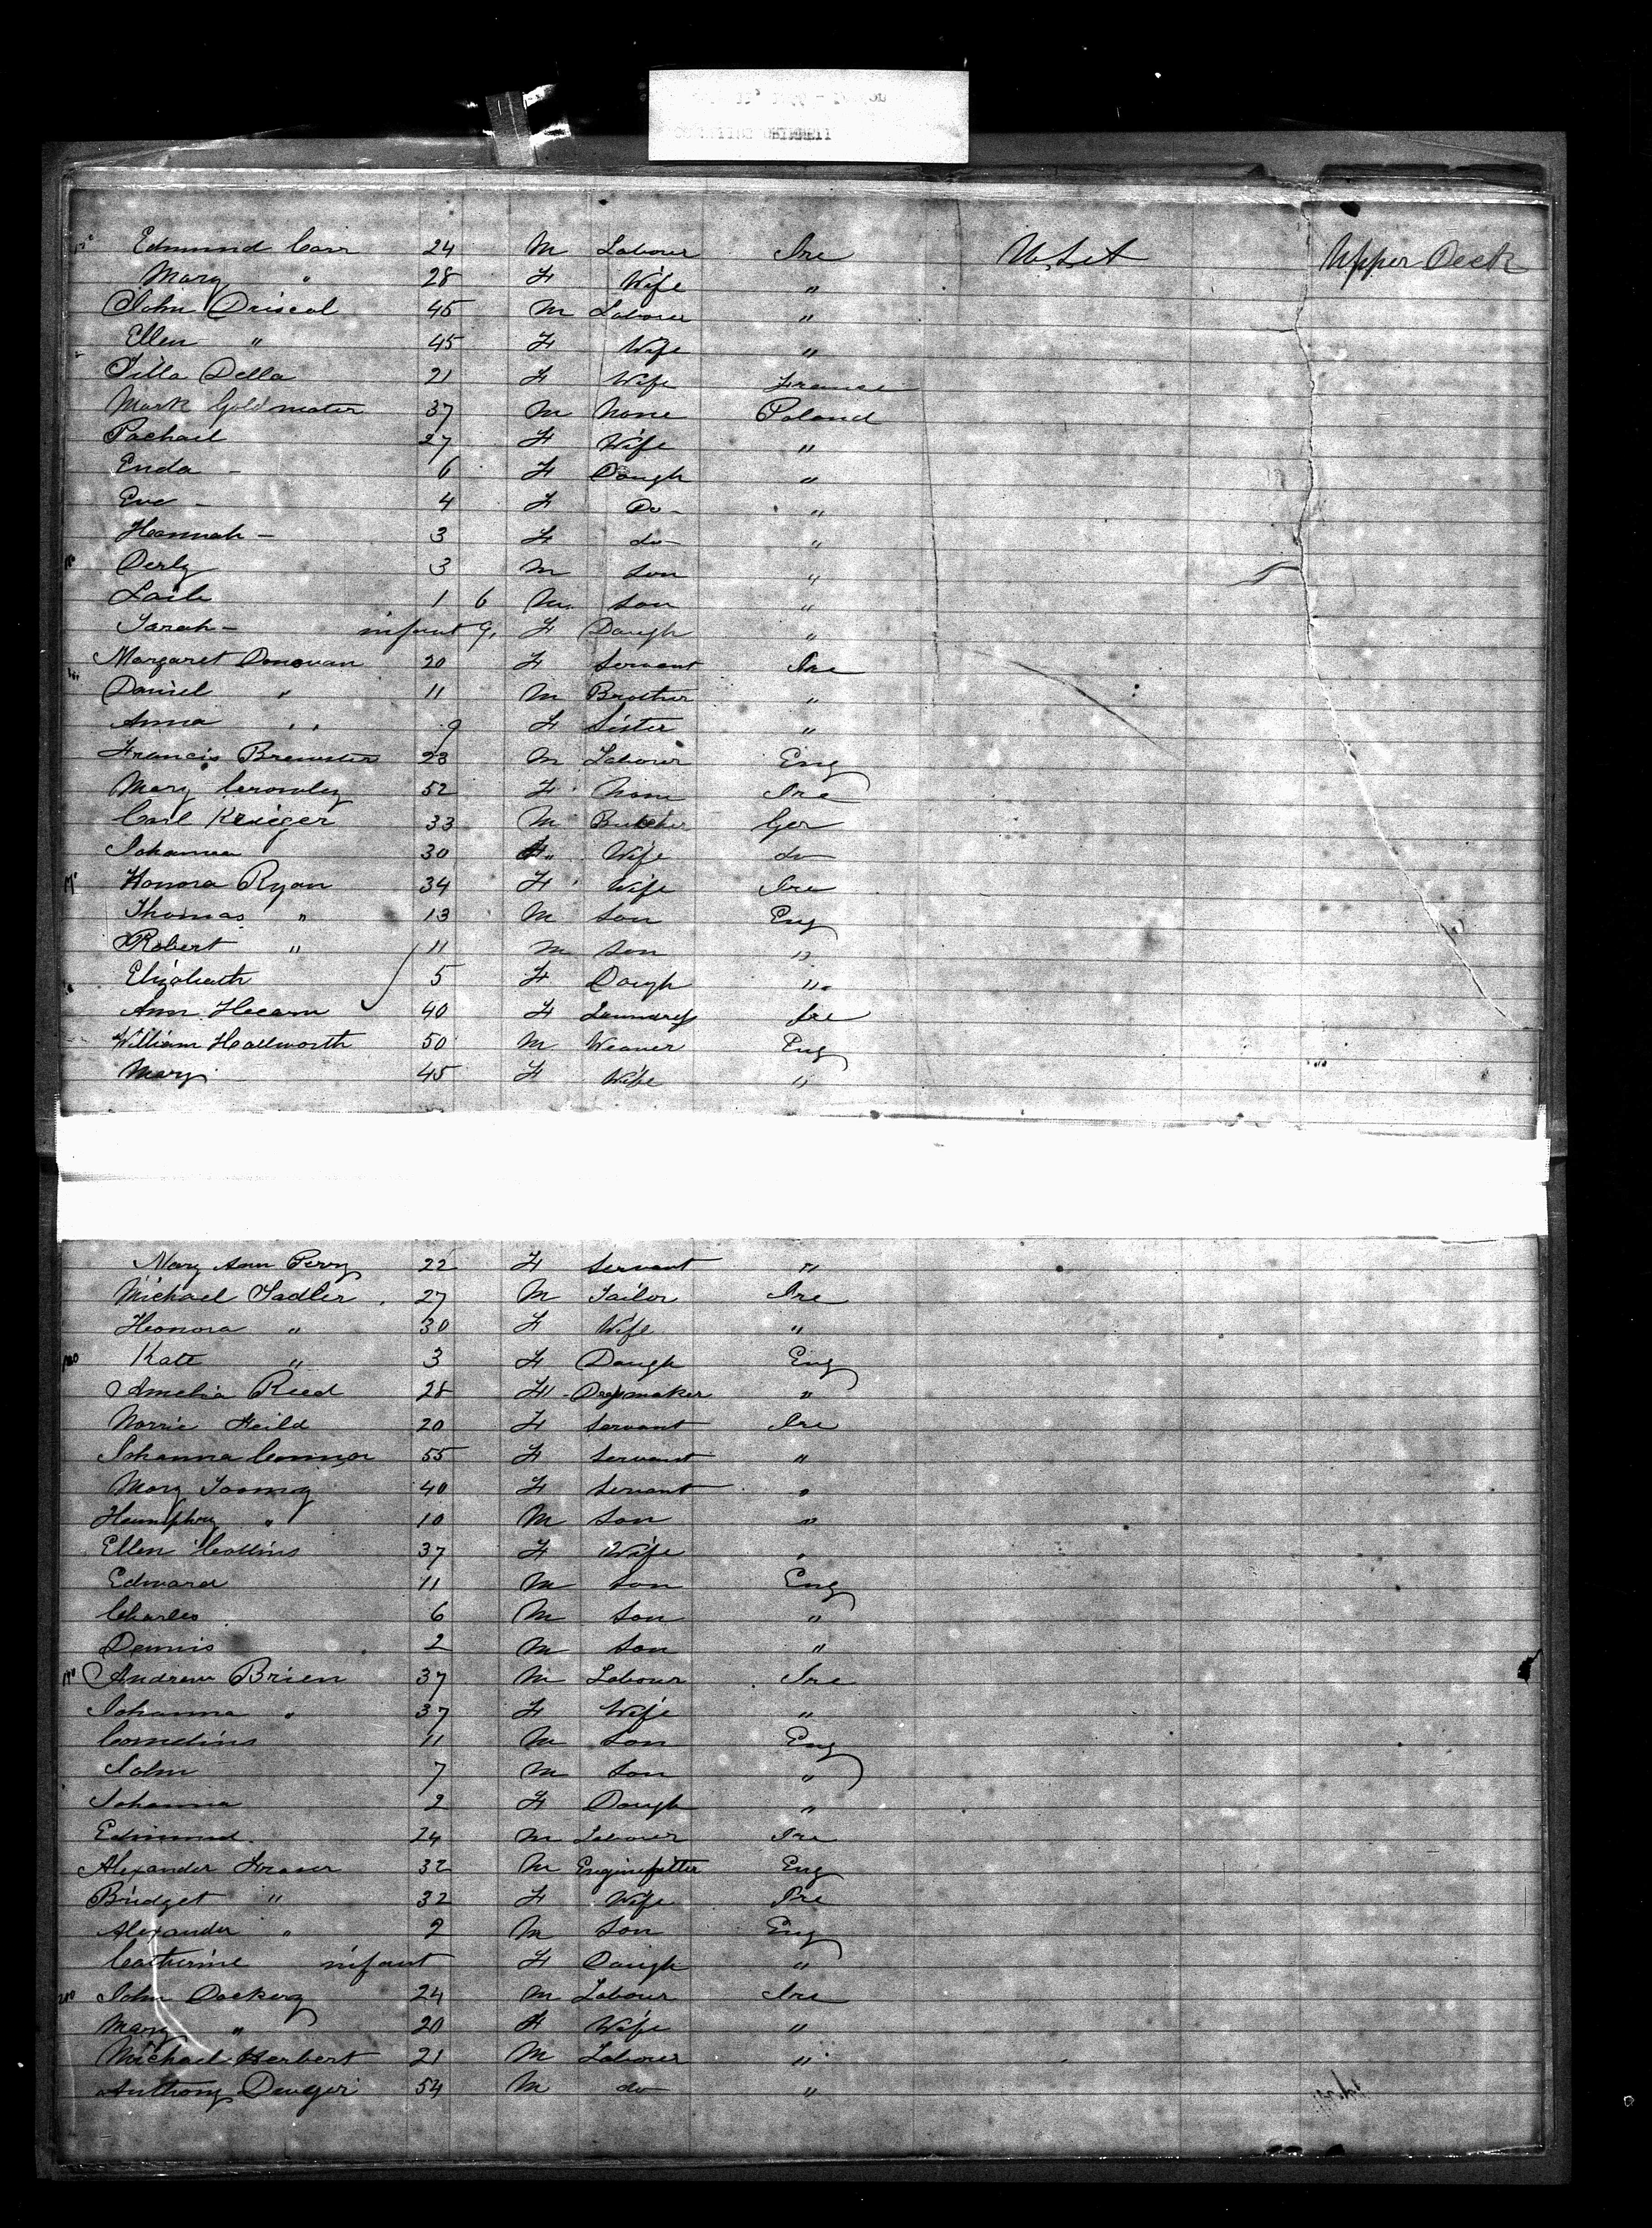 Edmund Carr 24 M Labour Ire U.S.A Upper Deck
Mary " 28 F Wife "
John Driscol 45 M Labour "
Ellen " 45 F Wife "
Della 21 F Wife France
Mark Goldwater 37 M None Poland
Rachael 27 F Wife "
Enda - 6 F Daugh "
Eva - 4 F Do "
Hannah - 3 F do "
3 M Son "
1 6 M Son "
Sarah - infant 9 F Daugh "
Margaret Donovan 20 F Servant Ire
Daniel " 11 M Brother "
Anna " 9 F Sister "
Francis Brewster 23 M Labour Eng
Mary Crowley 52 F None Ire
Carl Krieger 33 M Butcher Ger
Johanna 30 F Wife do
Honora Ryan 34 F Wife Ire
Thomas " 13 M Son Eng
Robert " 11 M Son "
Elizabeth 5 F Daugh "
Ann Hearn 40 F Ire
William Hallworth 50 M Weaver Eng
Mary 45 F Wife "
Mary Ann Perry 22 F Servant "
Michael Sadler 27 M Tailor Ire
Honora " 30 F Wife "
Kate " 3 F Daugh Eng
Amelia Reed 28 F Dressmaker "
Norrie Feild 20 F Servant Ire
Johanna Connor 55 F Servant "
Mary Toomy 40 F Servant "
Humphry " 10 M Son "
Ellen Collins 37 F Wife "
Edward 11 M Son Eng
Charles 6 M Son "
Dennis 2 M Son "
Andrew Brien 37 M Labour Ire
Johanna " 37 F Wife "
Cornelius 11 M Son Eng
John 7 M Son "
Johanna 2 F Daugh "
Edmund 24 M Labour Ire
Alexander Fraser 32 M Enginefitter Eng
Bridget " 32 F Wife Ire
Alexander " 2 M Son Eng
Catherine infant F Daugh "
John Dockery 24 M Labour Ire
Mary " 20 F Wife "
Michael Herbert 21 M Labour "
Anthony 54 M do "